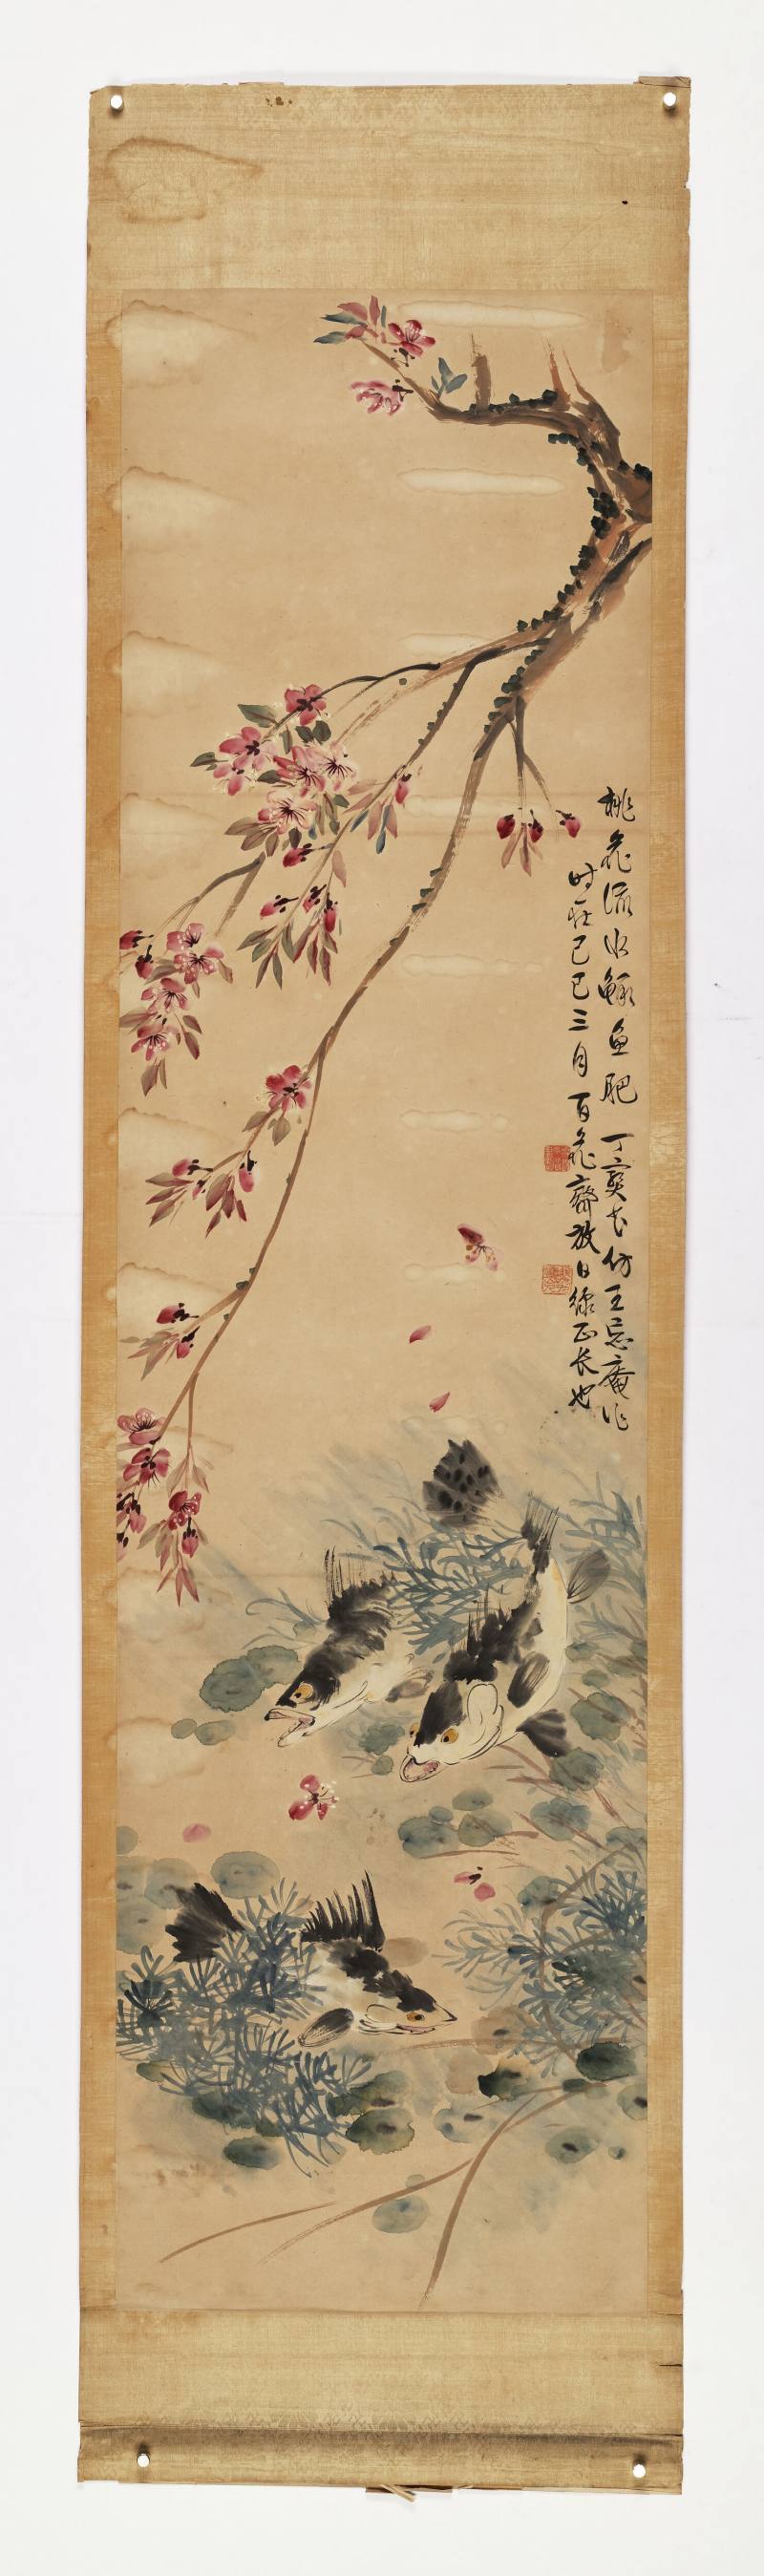 桃花流水鳜鱼肥 丁宝书仿王忘庵作
时在己巳三月百花斋放日绿正长也